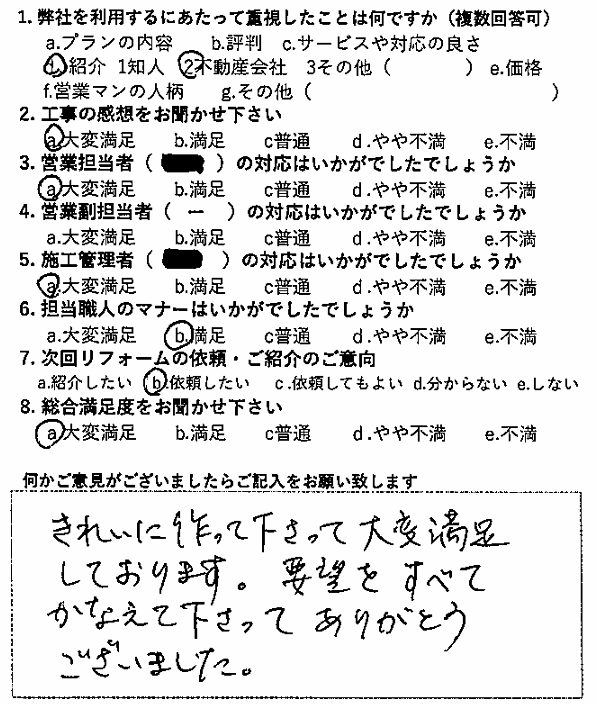 1. 弊社を利用するにあたって重視したことは何ですか（複数回答可）
a.プランの内容 b.評判 c.サービスや対応の良さ
d.紹介 1知人 2不動産会社 3その他（ ）e.価格
f.営業マンの人柄 g.その他（ ）
2. 工事の感想をお聞かせ下さい
a.大変満足 b.満足 c普通 d.やや不満 e.不満
3. 営業担当者（ ）の対応はいかがでしたでしょうか
a.大変満足 b.満足 c普通 d.やや不満 e.不満
4. 営業副担当者（ ー ）の対応はいかがでしたでしょうか
a.大変満足 b.満足 c普通 d.やや不満 e.不満
5. 施工管理者（ ）の対応はいかがでしたでしょうか
a.大変満足 b.満足 c普通 d.やや不満 e.不満
6. 担当職人のマナーはいかがでしたでしょうか
a.大変満足 b.満足 c普通 d.やや不満 e.不満
7. 次回リフォームの依頼・ご紹介のご意向
a.紹介したい b.依頼したい c.依頼してもよい d.分からない e.しない
8. 総合満足度をお聞かせ下さい
a.大変満足 b.満足 c普通 d.やや不満 e.不満
何かご意見がございましたらご記入をお願い致します
きれいに作って下さって大変満足
しております。要望をすべて
かなえて下さってありがとう
ございました。